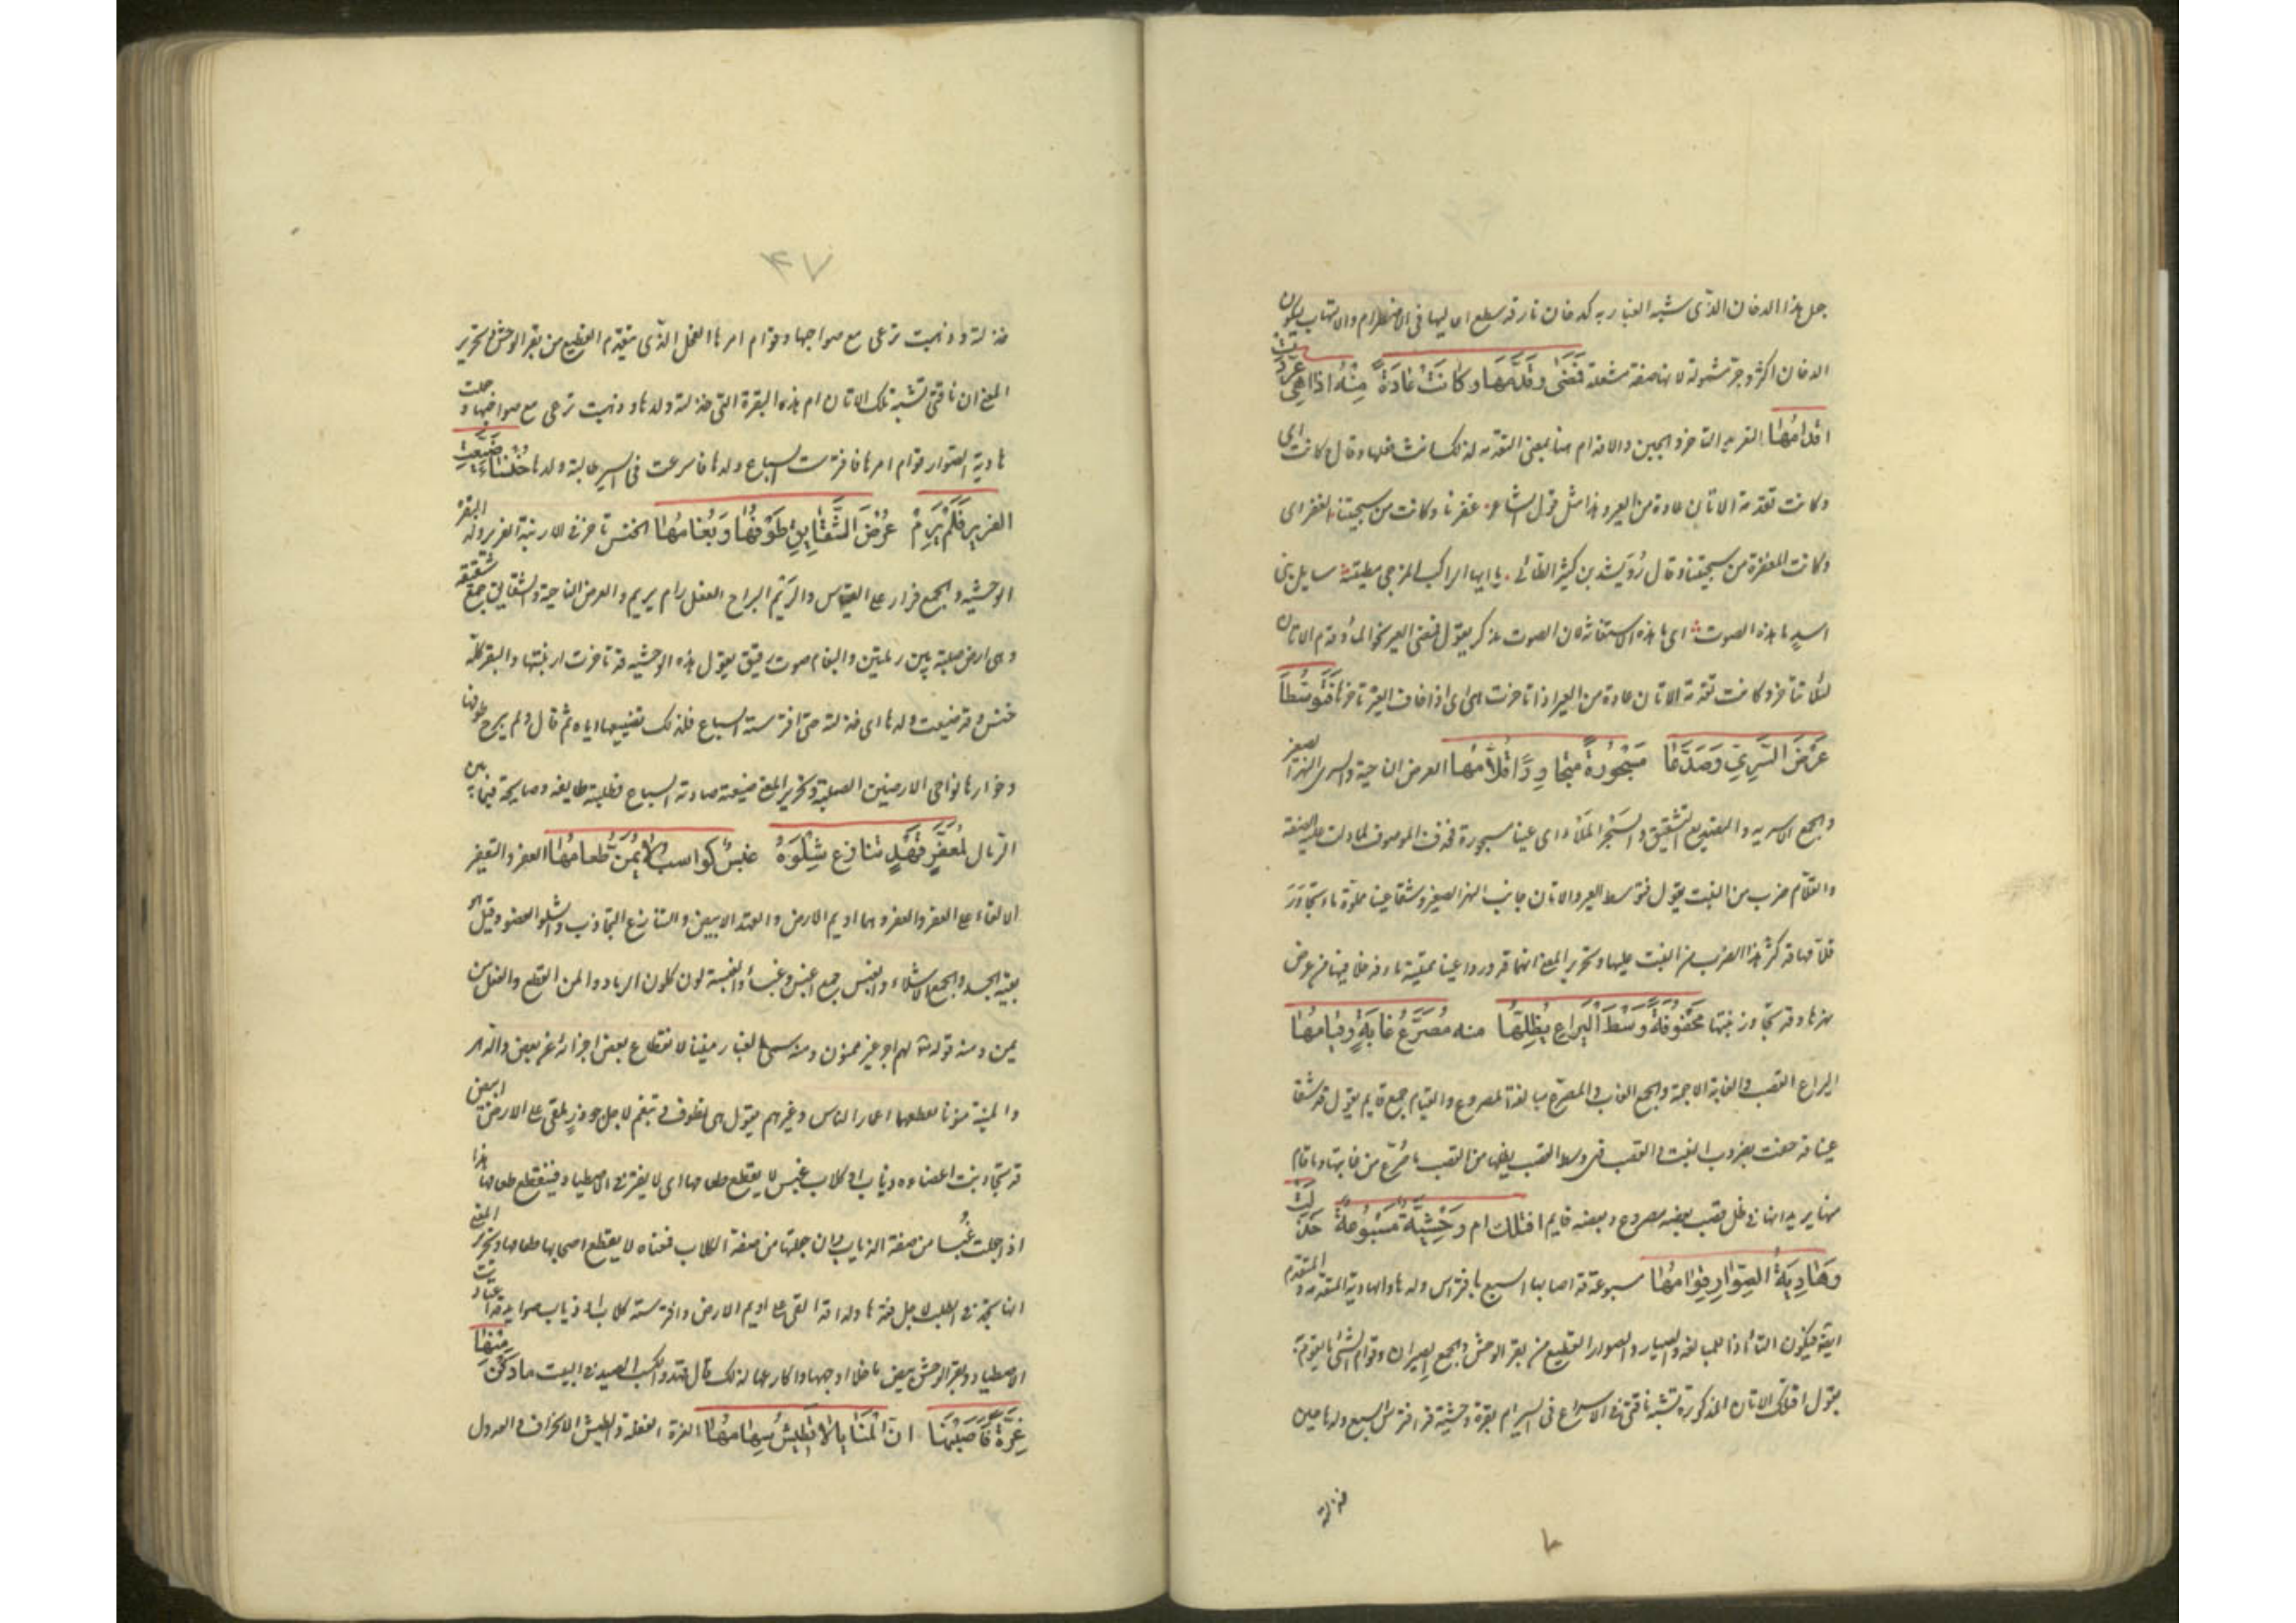 جعل هذا الدخان الذى شبه الغبار به كدخان نار قد سطع اعاليها فى الاضطرام والالتهاب ليكون
الدخان اكثر وجر مشمولة لانها صفة مشعلة فَمَضَىٰ وقَدَّمَهَا وكانَتْ عَادَةً مِنْهُ اذا هِىَ عَرَّدَتْ
اقدامُهَا التعريد التاخر والجبن والاقدام هنا بمعنى التقدمه لذلك انث فعلها وقال كانت اى
وكانت تقدمة الاتان عادة من العير وهذا مثل قول الشاعر غفرنا وكانت من سجيتنا الغفر اى
وكانت المغفرة من سجيتنا وقال رُوَيشد بن كثير الطائى يا ايها الراكب المزجى مطيته سايل بنى
اسد ما هذه الصوت اى ما هذه الاستغاثة لان الصوت مذكر يقول فمضى العير نحو الماء وقدم الاتان
لئلا تتاخر وكانت تقدمة الاتان عادة من العير اذا تاخرت هى اى اذا خاف العير تاخرها فَتَوَسَّطَا
عَرْضَ السَّرِيِّ وَصَدَّعَا مَسْجُورَةً متجاوِرًا قُلَّامُهَا العرض الناحية والسرى النهر الصغير
والجمع الاسريه والتصديع التشقيق والسجر الملاء اى عينا مسجورة فحذف الموصوف لما دلت عليه الصفة
والقلام ضرب من النبت يقول فتوسط العير والاتان جانب النهر الصغير وشقا عينا مملوة ماء وتجاوَرَ
قلامها قد كثر هذا الضرب من النبت عليها وتحرير المعنى انهما قد وردا عينا ممتلية ماء فدخلا فيها من عرض
نهرها وقد تجاور نبتها مَحْفُوفَةً وَسْطَ الْيَرَاعِ يُظِلُّهَا منه مُصَرَّعُ غابَةٍ وقيامُها
اليراع القصب والغابة الاجمة والجمع الغاب والمصرع مبالغة المصروع والقيام جمع قايم يقول قد شقا
عينا قد حفت بضروب النبت والقصب فهى وسط القصب يظلها من القصب ما صُرِّع من غابتها وما قام
منها يريد انها فى ظل قصب بعضه مصروع وبعضه قايم افتلك ام وَحْشِيَّةٌ مَسْبُوعَةٌ خَذَلَتْ
وَهَادِيَةُ الصِّوَارِ قِوَامُهَا مسبوعة قد اصابها السبع بافتراس ولدها والهادية المتقدمة والمتقدم
ايضا فيكون التاء اذا للمبالغة والصيار والصوار القطيع من بقر الوحش والجمع الصيران وقوام الشئ ما يقوم به
يقول افتلك الاتان المذكورة تشبه ناقتى فى الاسراع فى السير ام بقرة وحشية قد افترس السبع ولدها حين
خذلته
٤٧
خذلته وذهبت ترعى مع صواحبها وقوام امرها الفحل الذى يتقدم القطيع من بقر الوحش وتحرير
المعنى ان ناقتى تشبه تلك الاتان ام هذه البقرة التى خذلت ولدها وذهبت ترعى مع صواحبها وجعلت
هادية الصوار قوام امرها فافترست السباع ولدها فاسرعت فى السير طالبة ولدها خَنْسَاءُ ضَيَّعَتِ
الفرير فَلَمْ يَرِمْ عُرْضَ الشَّقَايِقِ طَوْفُهَا وَبُغَامُهَا الخنس تاخر فى الارنبة الفرير ولد البقرة
الوحشية والجمع فرار على غير القياس والريم البراح الفعل رام يريم والعرض الناحية والشقايق جمع شقيقه
وهى ارض صلبة بين رملتين والبغام صوت رقيق يقول هذه الوحشية قد تاخرت ارنبتها والبقر كله
خنس وقد ضيعت ولدها اى خذلته حتى افترسته السباع فلذلك تضييعها اياه ثم قال ولم يبرح طوفها
وخوارها نواحى الارضين الصلبة وتحرير المعنى ضيعته صادته السباع فطلبته طايفة وصايحة فيما بين
الرمال لمُعَفَّرٍ قَهْدٍ تنازع شِلْوَهُ غبسٌ كواسبُ لا يُمَنُّ طعامُها العفر والتعفير
الالقاء على العفر والعفر وهما اديم الارض والقهد الابيض والتنازع التجاذب والشلو العضو وقيل هو
بقية الجسد والجمع الاشلاء والغبس جمع اغبس وغبساء والغبسة لون كلون الرماد والمن القطع والفعل من
يمن ومنه قوله لهم اجر غير ممنون ومنه سمى الغبار منينا لانقطاع بعض اجزائه عن بعض والدهر
والمنية منونا لقطعهما اعمار الناس وغيرهم يقول هى تطوف وتبغم لاجل جوذر ملقى على الارض ابيض
قد تجاذبت اعضاءه ذياب او كلاب غبس لا يقطع طعامها اى لا يفتر فى الاصطياد فينقطع طعامها هذا
اذا جعلت غُبسا من صفة الذياب وان جعلتها من صفة الكلاب فمعناه لا يقطع اصحابها طعامها وتحرير المعنى
انها تجد فى الطلب لاجل فقدها ولدا قد القى على اديم الارض وافترسته كلاب او ذياب صوايد قد اعتادت
الاصطياد وبقر الوحش بيض ما خلا اوجهها واكارعها لذلك قال قهد والكسب الصيد فى البيت صادَفْنَ مِنْهَا
غِرَّةً فَاَصَبْنَهَا انَّ الْمَنَايا لا تَطِيشُ سِهامُهَا الغرة الغفلة والطيش الانحراف والعدول